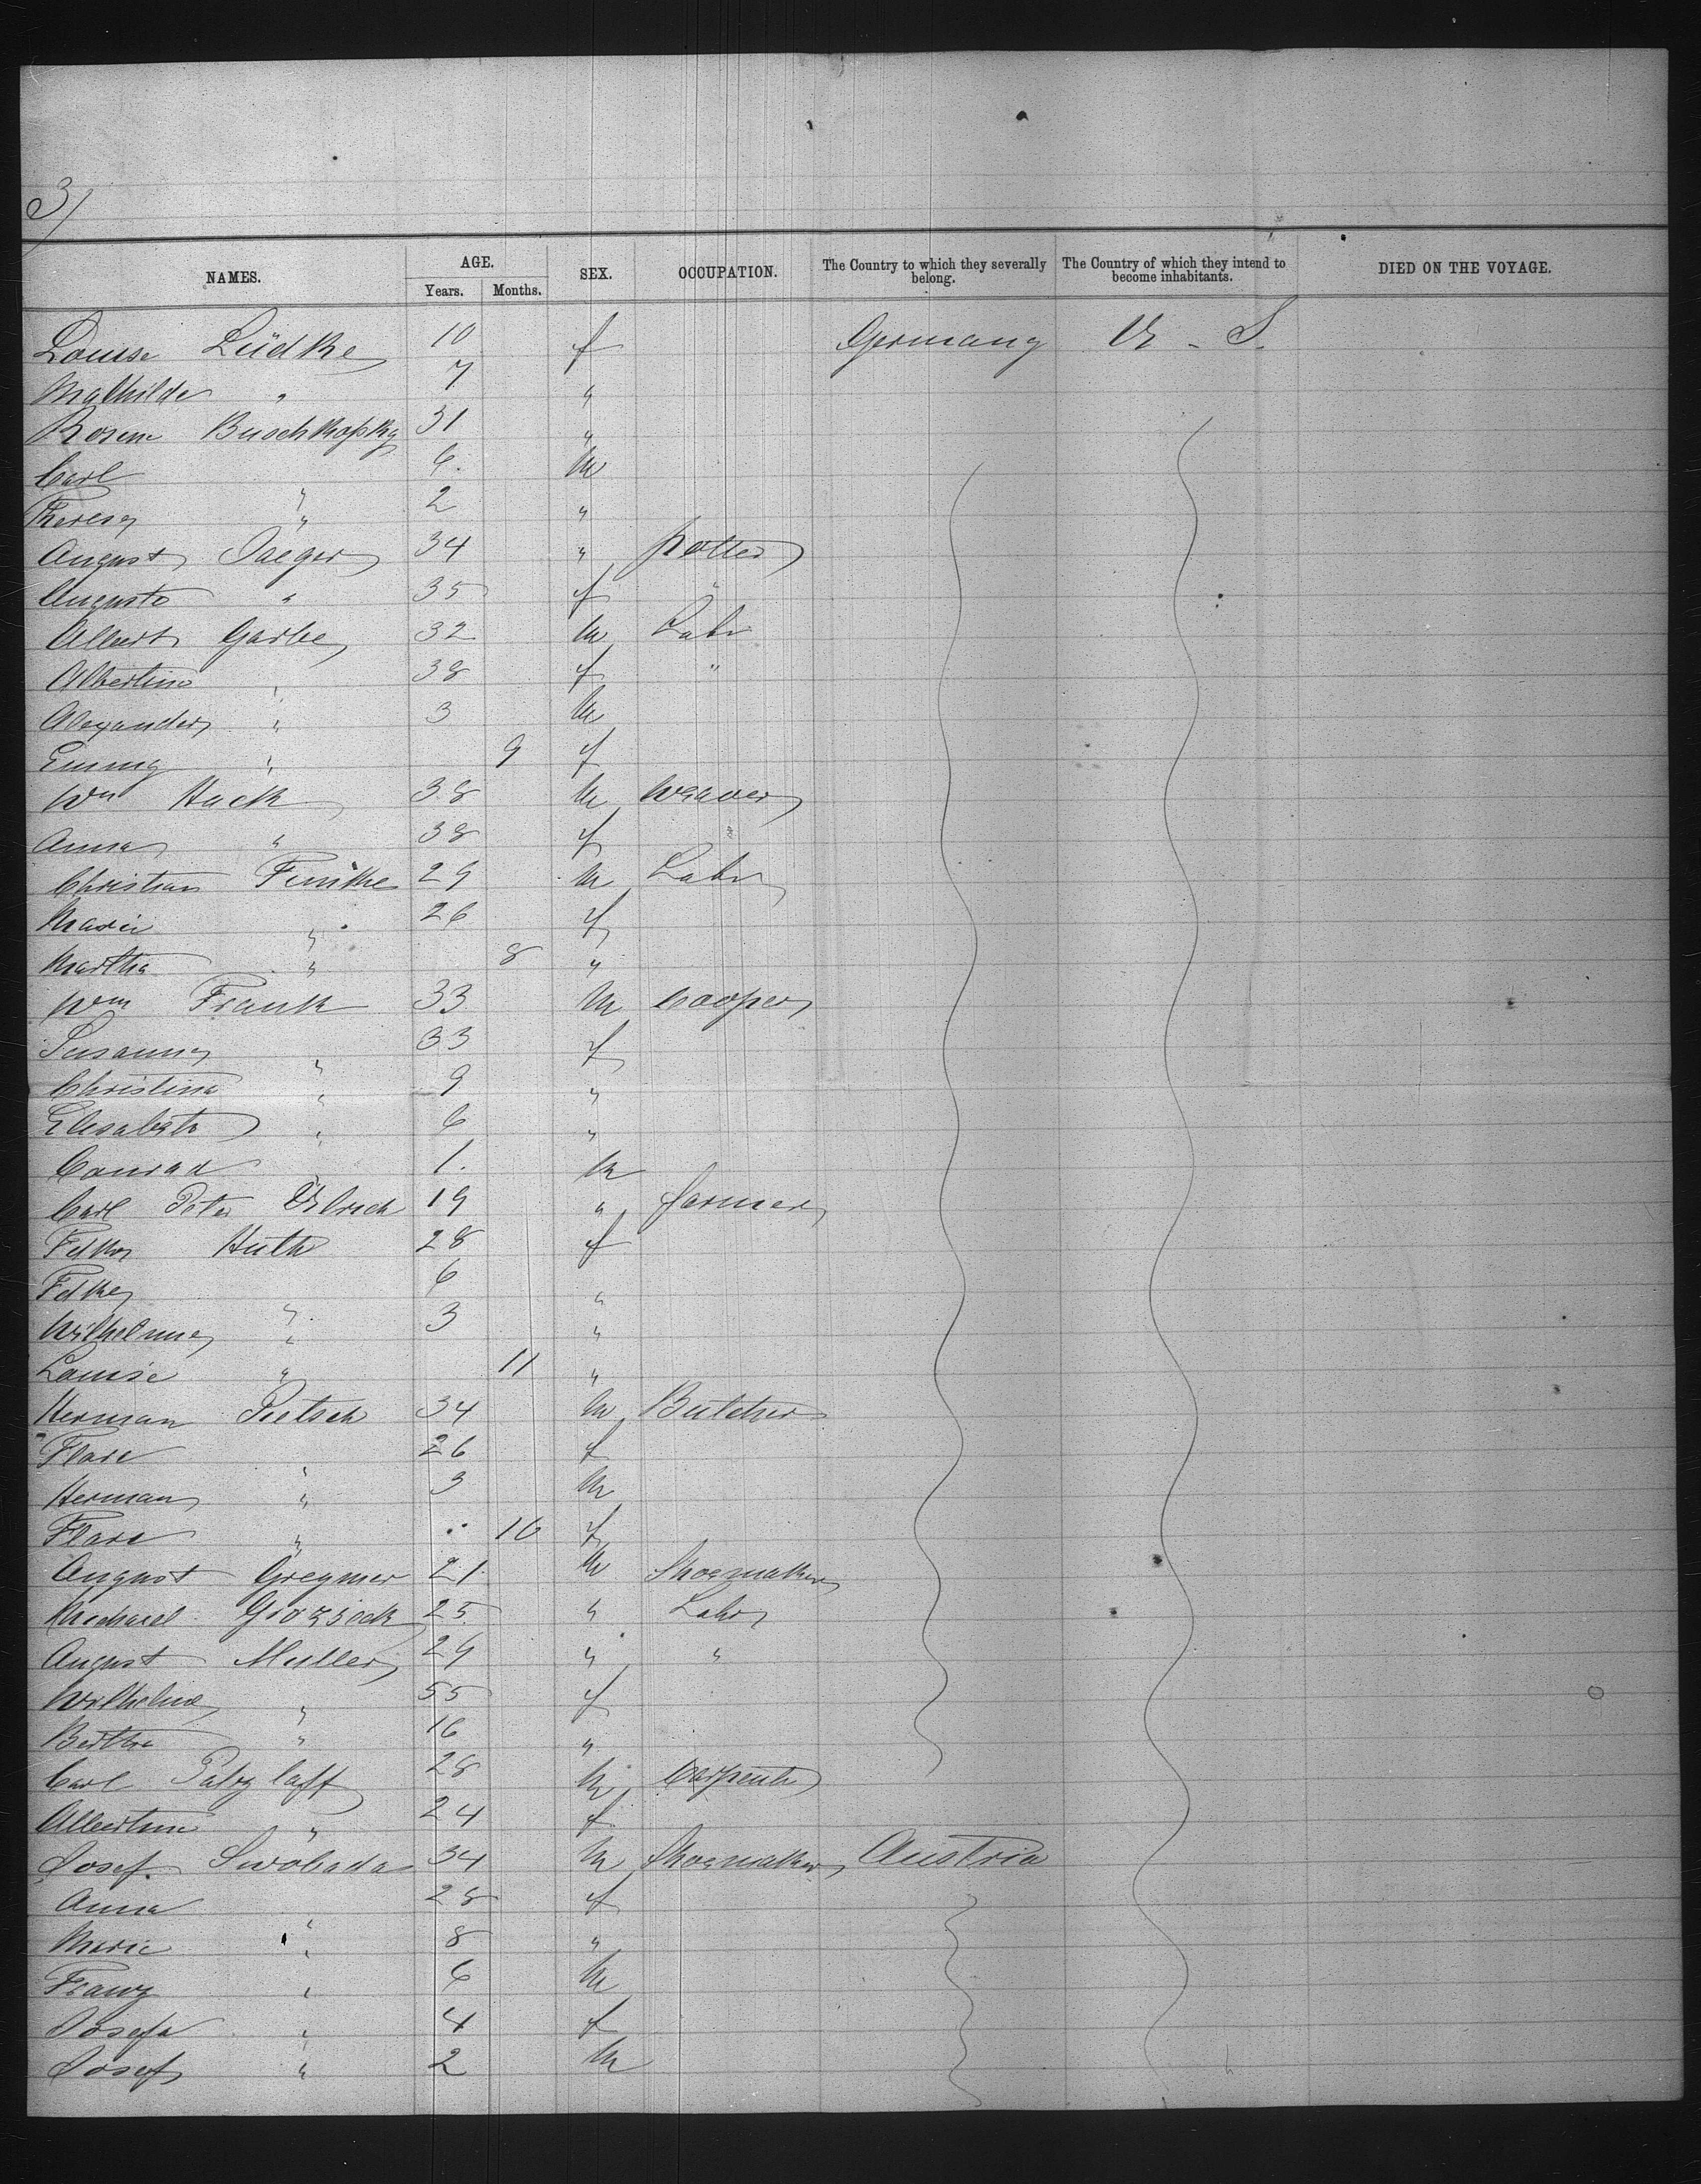 3/
NAMES. AGE. Years. Months. SEX. OCCUPATION. The Country to which they severally belong. The Country of which they intend to become inhabitants. DIED ON THE VOYAGE.
Louise Lüdke 10 f Germany U. S.
Mathilde " 7 "
Rosine Buschkopky 31 "
Carl " 6. M
Theresa " 2 "
August Jaeger 34 " potter
Augusta " 35 f "
Albert Garbe 32 M Labr
Albertine " 38 f "
Alexander " 3 M
Emmy " 9 f
Wm Hack 38 M Weaver
Anna " 38 f "
Christian 29 M Labr
Marie " 26 f
Martha " 8 "
Wm Frank 33 M Cooper
Susanna " 33 f
Christina " 9 "
Elisabeth " 6 "
Conrad " 1. M
Carl Peter Ulrich 19 " farmer
Fdke Huth 28 f
Fdke " 6 "
Wilhelmine " 3 "
Louise " 11 "
Herman Pietsch 34 M Butcher
Flare " 26 f
Herman " 3 M
Flare " 10 f
August Greymer 21. M Shoemaker
Michael 25 " Labr
August Muller 29 " "
Wilhelme " 55 f
Bertha " 16 "
Carl Patzlaff 28 M Carpentr
Albertine " 24 f
Josef Swoboda 34 M Shoemaker Austria
Anna " 28 f
Marie " 8 "
Franz " 6 M
Josefa " 4 f
Josef " 2 M